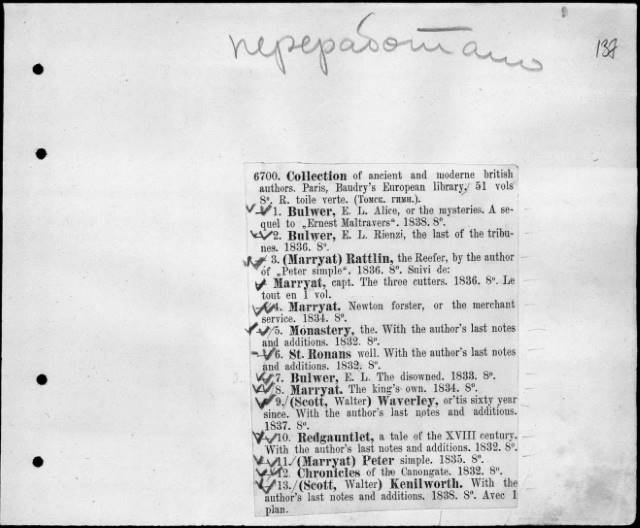 переработано
137
6700. Collection of ancient and moderne british
authors. Paris, Baudry's European library, 51 vols
8º. R. toile verte. (Томск. гимн.).
1. Bulwer, E. L. Alice, or the mysteries. A se-
quel to „Ernest Maltravers“. 1838. 8º.
2. Bulwer, E. L. Rienzi, the last of the tribu-
nes. 1836. 8º.
3. (Marryat) Rattlin, the Reefer, by the author
of „Peter simple“. 1836. 8º. Suivi de:
Marryat, capt. The three cutters. 1836. 8º. Le
tout en 1 vol.
4. Marryat. Newton forster, or the merchant
service. 1834. 8º.
5. Monastery, the. With the author's last notes
and additions. 1832. 8º.
6. St. Ronans well. With the author's last notes
and additions. 1832. 8º.
7. Bulwer, E. L. The disowned. 1833. 8º.
8. Marryat. The king's own. 1834. 8º.
9. (Scott, Walter) Waverley, or'tis sixty year
since. With the author's last notes and additions.
1837. 8º.
10. Redgauntlet, a tale of the XVIII century.
With the author's last notes and additions. 1832. 8º.
11. (Marryat) Peter simple. 1835. 8º.
12. Chronicles of the Canongate. 1832. 8º.
13. (Scott, Walter) Kenilworth. With the
author's last notes and additions. 1838. 8º. Avec 1
plan.